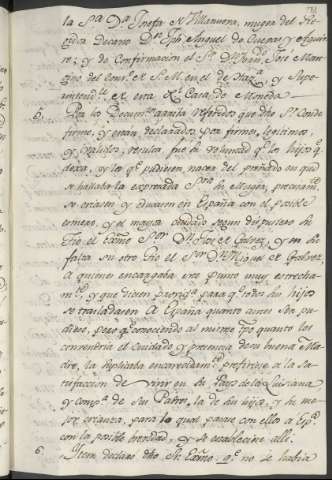 la S.ra D.a Josefa de Villanueva, muger del Re-
gidor Decano D.n Jph. Miguel de Cuevas y Aguir-
re; y de Confirmacion el S.r D.n Juan José Mar-
tinez del Consejo de S.M. en el de Haz.a y Supe-
rintend.te de esta R.l Casa de Moneda.
5. Por los Documentos aquita referidos que dho S.r Conde
firmó, y están declarados por firmes, legitimos,
y validos, resulta fue su voluntad q.e los hijos q.e
dexa, y los q.e pudieren, nacer del preñado en que
se hallaba la expresada S.ra su Muger, precisam.te
se criasen y educasen en España con el posible
esmero, y el mayor cuidado segun dispusiese su
Tio el Exmo S.or D.n José de Galvez, y en su
falta su otro Tio el S.or D.n Miguel de Galvez,
A quienes encargaba este punto muy estrecham.
te, y que diesen providencia para q.e todos sus hijos
se trasladasen A España quanto antes sea pu-
diese, pero q.e conociendo al mismo tpo quanto les
convendria el Cuidado y presencia de su buena Ma-
dre, la suplicaba encarecidam.te prefiriese a la Sa-
tisfaccion de vivir en su Pays de la Luisiana
y comp.a de sus Padres, la de sus hijos, y su me-
jor crianza, para lo qual pasase con ellos a Esp.a
con la posible brevedad, y se estableciese alli.
6. Item declaro dho S.r Exmo. q.e no se habia